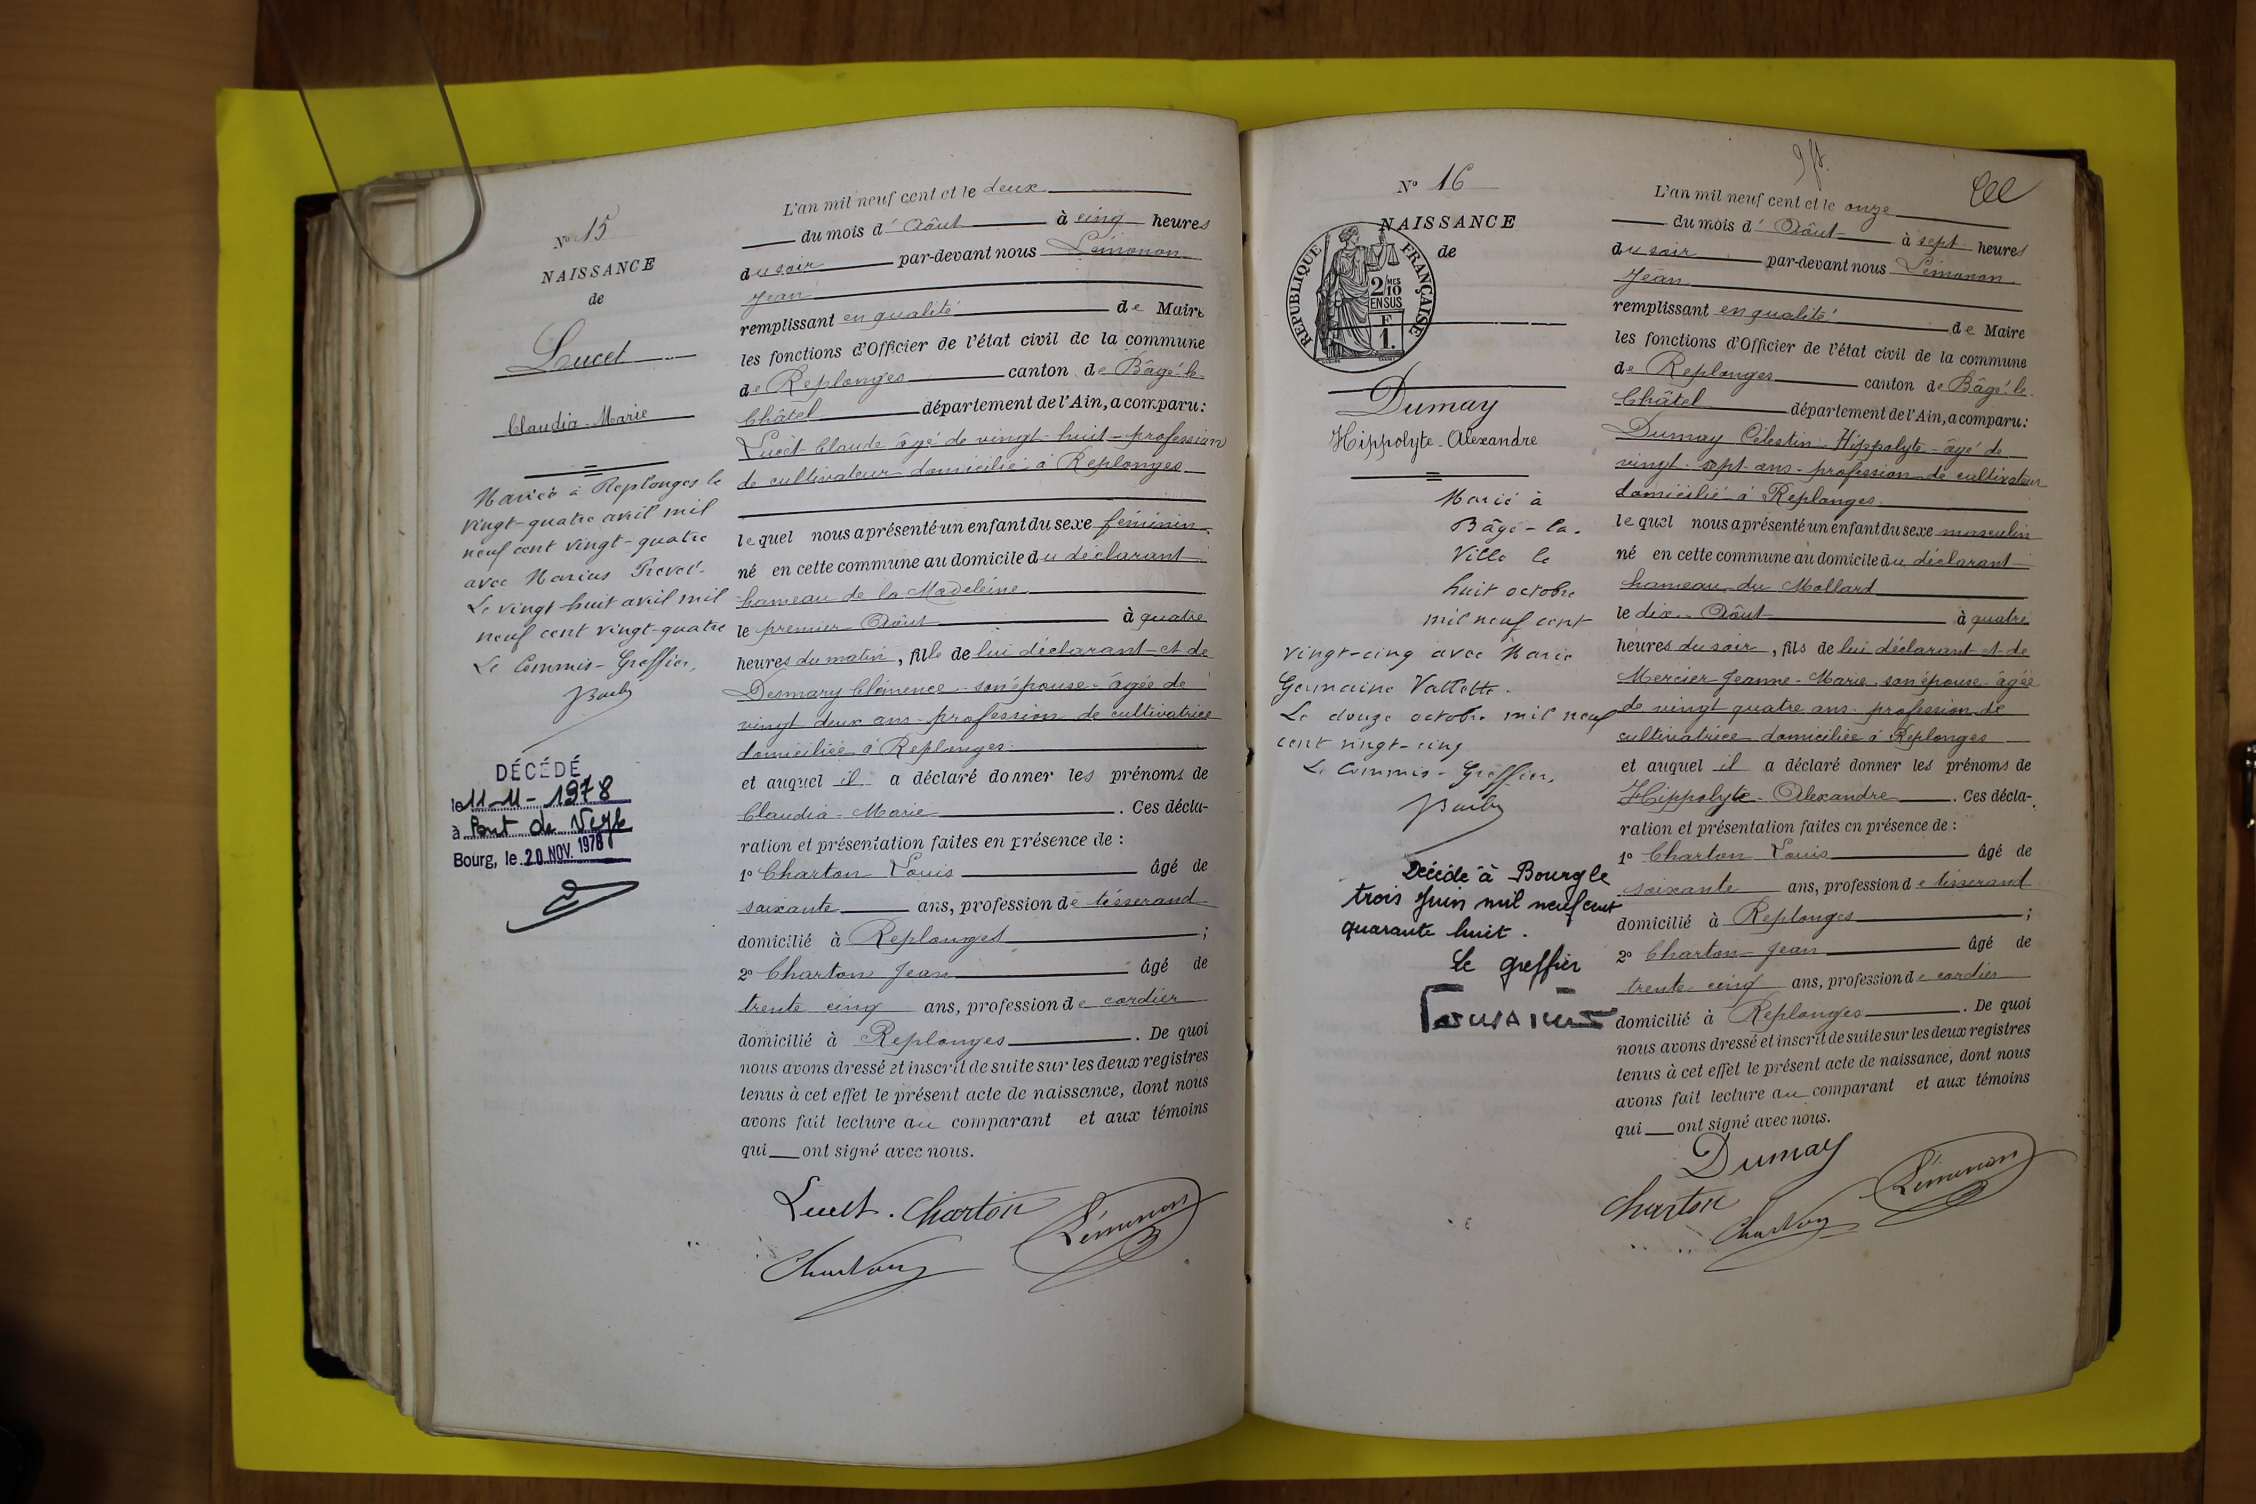 N° 15
NAISSANCE
de
Lucet
Claudia-Marie
Mariée à Replonges le
vingt-quatre avril mil
neuf cent vingt-quatre
avec Marius
Le vingt-huit avril mil
neuf cent vingt-quatre
Le Commis-Greffier,
DÉCÉDÉ
le 11-11-1978
à Pont de Veyle
Bourg, le 20 NOV. 1978
L'an mil neuf cent et le deux
du mois d'Août à cinq heures
du soir par-devant nous Lémonon
Jean
remplissant en qualité de Maire
les fonctions d'Officier de l'état civil de la commune
de Replonges canton de Bâgé-le-
Châtel département de l'Ain, a comparu:
Lucet Claude âgé de vingt-huit - profession
de cultivateur domicilié à Replonges
lequel nous a présenté un enfant du sexe féminin
né en cette commune au domicile du déclarant
hameau de la Madeleine
le premier Août à quatre
heures du matin, fille de lui déclarant et de
Desmary Clémence son épouse âgée de
vingt deux ans profession de cultivatrice
domiciliée à Replonges
et auquel il a déclaré donner les prénoms de
Claudia-Marie. Ces décla-
ration et présentation faites en présence de :
1° Charton Louis âgé de
soixante ans, profession de tisserand
domicilié à Replonges ;
2° Charton Jean âgé de
trente cinq ans, profession de cordier
domicilié à Replonges. De quoi
nous avons dressé et inscrit de suite sur les deux registres
tenus à cet effet le présent acte de naissance, dont nous
avons fait lecture au comparant et aux témoins
qui ont signé avec nous.
Lucet. Charton Lémonon
N° 16
NAISSANCE
de
RÉPUBLIQUE FRANÇAISE
2 MES
10
EN SUS
F
1.
Dumay
Hippolyte-Alexandre
Marié à
Bâgé-la-
Ville le
huit octobre
mil neuf cent
vingt-cinq avec Marie
Germaine Vallette.
Le douze octobre mil neuf
cent vingt-cinq
Le Commis-Greffier,
Décédé à Bourg le
trois Juin mil neuf cent
quarante huit.
Le greffier
L'an mil neuf cent et le onze
du mois d'Août à sept heures
du soir par-devant nous Lémonon
Jean
remplissant en qualité de Maire
les fonctions d'Officier de l'état civil de la commune
de Replonges canton de Bâgé-le-
Châtel département de l'Ain, a comparu:
Dumay Célestin-Hippolyte-âgé de
vingt-sept-ans-profession de cultivateur
domicilié à Replonges
lequel nous a présenté un enfant du sexe masculin
né en cette commune au domicile du déclarant
hameau du Mollard
le dix Août à quatre
heures du soir, fils de lui déclarant et de
Mercier Jeanne-Marie son épouse âgée
de vingt quatre ans profession de
cultivatrice domiciliée à Replonges
et auquel il a déclaré donner les prénoms de
Hippolyte-Alexandre. Ces décla-
ration et présentation faites en présence de :
1° Charton Louis âgé de
soixante ans, profession de tisserand
domicilié à Replonges ;
2° Charton Jean âgé de
trente cinq ans, profession de cordier
domicilié à Replonges. De quoi
nous avons dressé et inscrit de suite sur les deux registres
tenus à cet effet le présent acte de naissance, dont nous
avons fait lecture au comparant et aux témoins
qui ont signé avec nous.
Dumay
Charton Lémonon